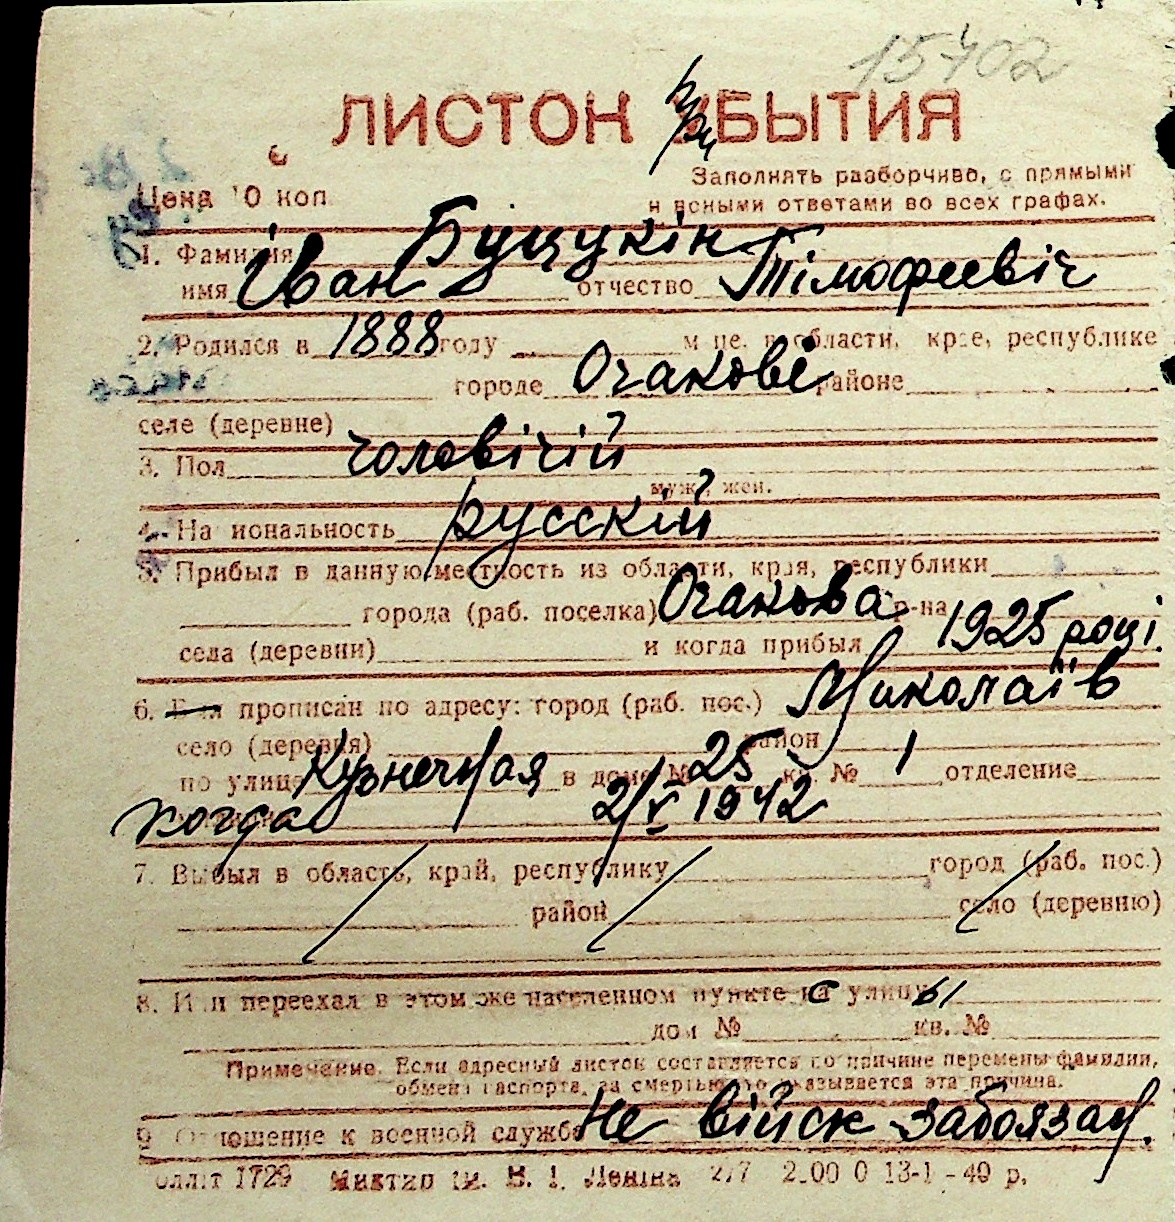 15402
ЛИСТОН при БЫТИЯ
Цена 10 коп
Заполнять разборчиво, с прямыми
и ясными ответами во всех графах.
1. Фамилия Буцукін
имя Іван отчество Тімофеевіч
2. Родился в 1888 году области, крае, республике
городе Очакові районе
селе (деревне)
3. Пол чоловічій
муж., жен.
4. На иональность русскій
5. Прибыл в данную местность из области, края, республики
города (раб. поселка) Очакова р-на
села (деревни) и когда прибыл 1925 році.
6. прописан по адресу: город (раб. пос.) Миколаїв
село (деревня) район
по улице Кузнечная в доме № 25 кв. № 1 отделение
когда 2/V 1942
7. Выбыл в область, край, республику город (раб. пос.)
район село (деревню)
8. Или переехал в этом же населенном пункте с улицы
дом № кв. №
Примечание. Если адресный листок составляется по причине перемены фамилии,
обмена паспорта, за смертью, то указывается эта причина.
9 Отношение к военной службе Не військ забоязан.
1729 Леніна 2/7 13-1-40 р.